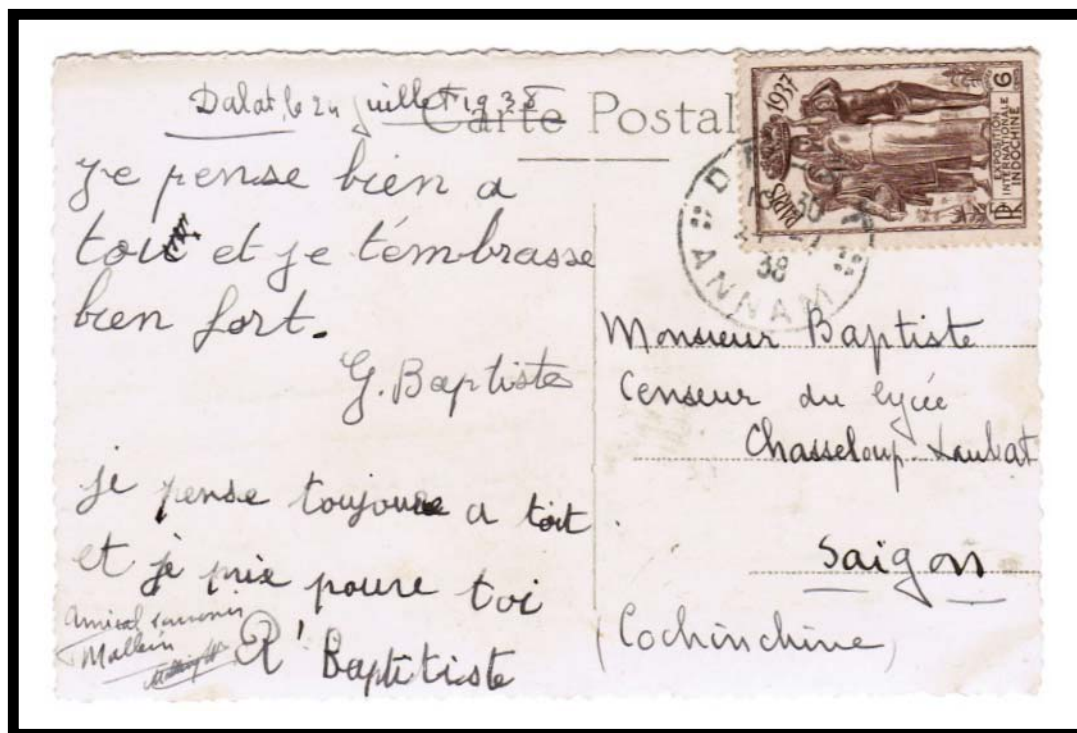 Dalat, le 24 juillet 1938
Carte Postal
Je pense bien a
toi et je t'embrasse
bien fort.
G. Baptiste
je pense toujoure a toit
et je prie poure toi
R' Baptitiste
Amical souvenir
Mallein
PARIS 1937
6
EXPOSITION
INTERNATIONALE
INDOCHINE
RF
38
ANNAM
Monsieur Baptiste
Censeur du lycée
Chasseloup-Laubat
Saigon
(Cochinchine)